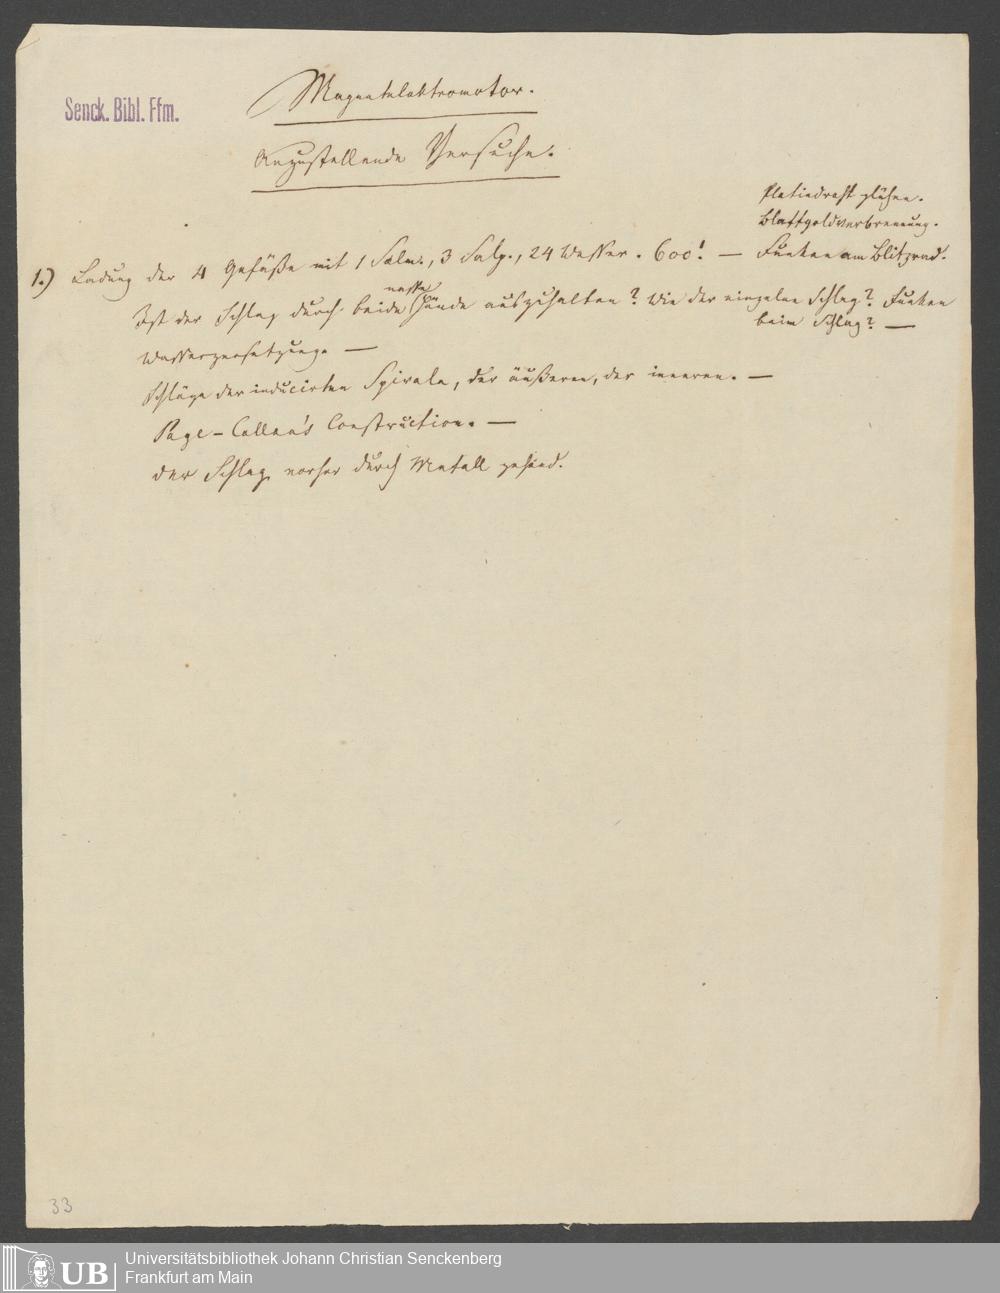 Senck. Bibl. Ffm.
Magnetelektromotor.
Anzustellende Versuche.
Platindraht glühen.
Blattgoldverbrennung.
1.) Ladung der 4 Gefäße mit 1 Salm., 3 Salp., 24 Wasser. 600! — Funken am Blitzrad.
nasse
Ist der Schlag durch beide Hände auszuhalten? Wie der einzelne Schlag? Funken
beim Schlag? —
Wasserzersetzung. —
Schläge der inducirten Spirale, der äußeren, der inneren. —
Page-Callan's Construction. —
der Schlag vorher durch Metall gehend.
33
UB Universitätsbibliothek Johann Christian Senckenberg
Frankfurt am Main